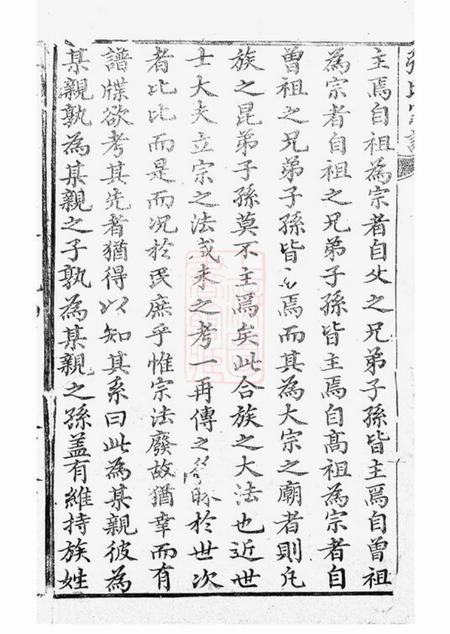 主焉自祖為宗者自父之兄弟子孫皆主焉自曾祖
為宗者自祖之兄弟子孫皆主焉自髙祖為宗者自
曾祖之兄弟子孫皆主焉而其為大宗之廟者則凡
族之昆弟子孫莫不主焉矣此合族之大法也近世
士大夫立宗之法或未之考一再傳之 眎於世次
者比比而是而况於民庶乎惟宗法廢故猶幸而有
譜牒欲考其先者猶得以知其系曰此為某親彼為
某親孰為某親之子孰為某親之孫盖有維持族姓